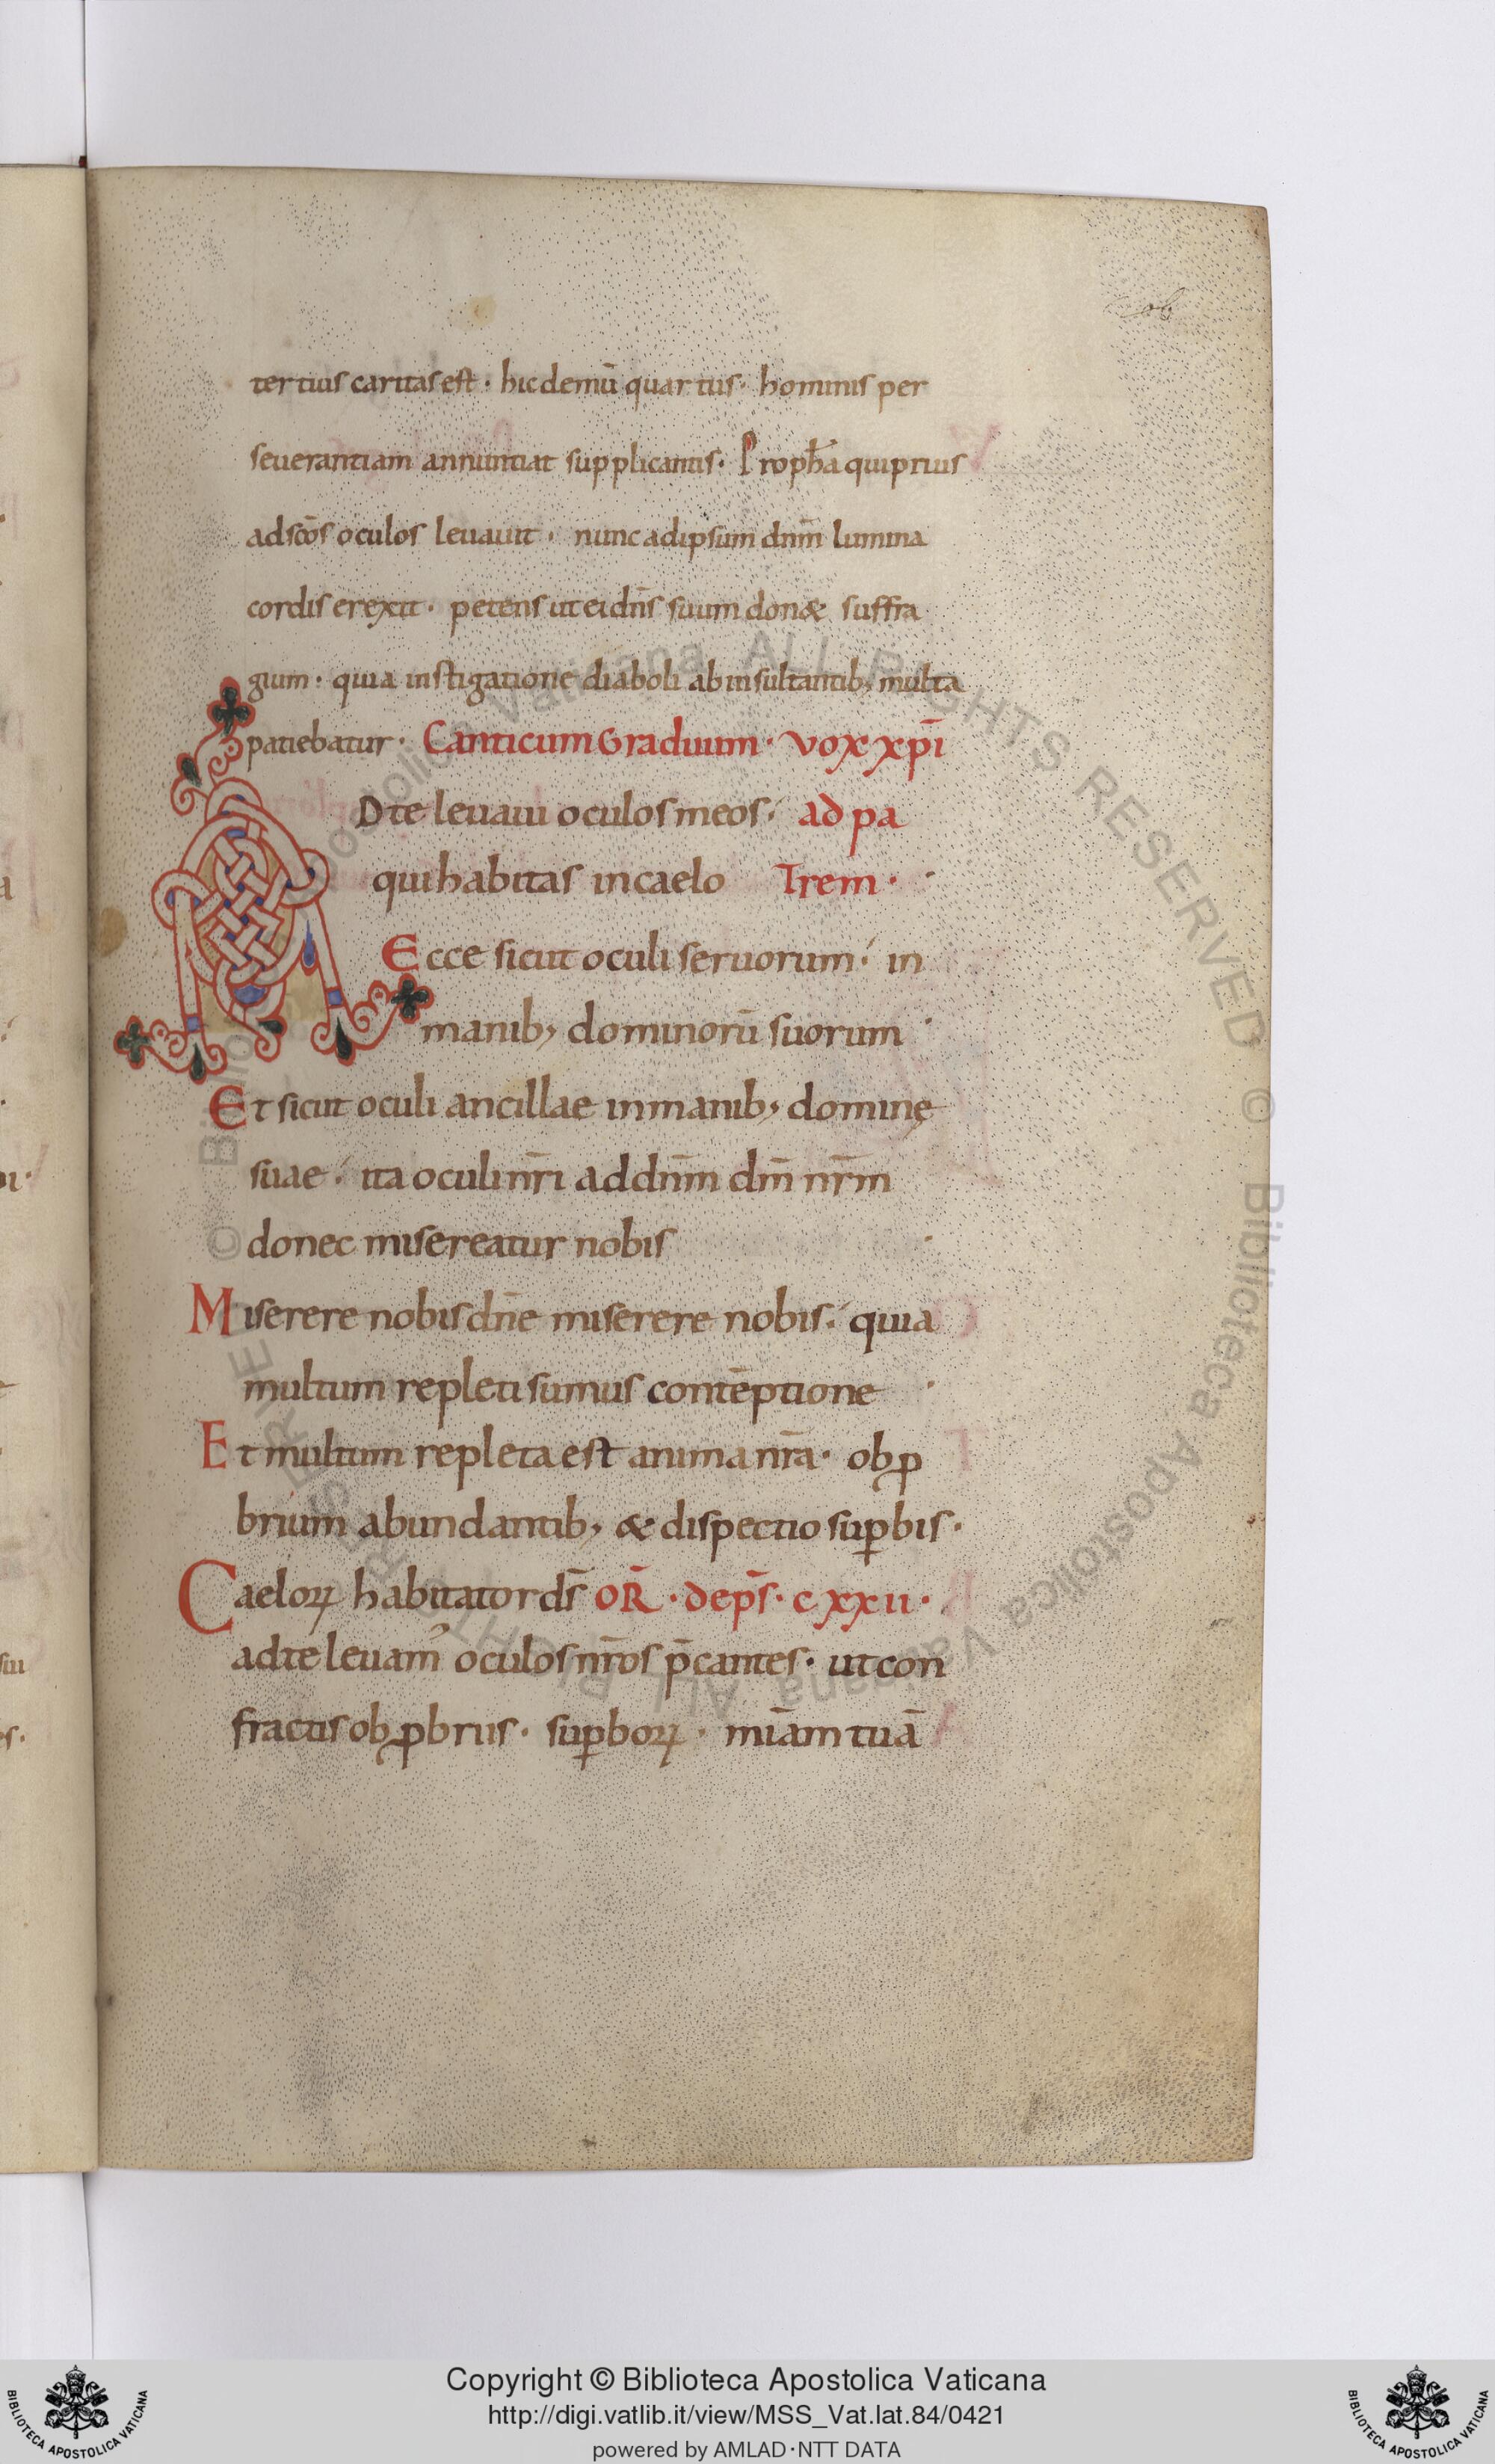 tertius caritas est · hic demū quartus · hominis per
seuerantiam annuntiat supplicantis · Proph̄a qui prius
ad sc̄os oculos leuauit · nunc ad ipsum dnm̄ lumina
cordis erexit · petens ut ei dn̄s suum don& suffra
gium · quia instigatione diaboli ab insultantib; multa
patiebatur · Canticum Graduum · vox xp̄i
AD te leuaui oculos meos · ad pa
qui habitas in caelo Trem ·
Ecce sicut oculi seruorum · in
manib; dominorū suorum ·
Et sicut oculi ancillae in manib; dominę
suae · ita oculi nr̄i ad dnm̄ dm̄ nr̄m
donec misereatur nobis ·
Miserere nobis dn̄e miserere nobis · quia
multum repleti sumus contēptione ·
Et multum repleta est anima nr̄a · obꝓ
brium abundantib; & dispectio suꝑbis ·
Caeloꝝ habitator ds̄ OR̄ · de ps̄ · cxxii ·
ad te leuam᾽ oculos nr̄os p̄cantes · ut con
fractis obꝓbriis · suꝑboꝝ · mīam tuā
Copyright © Biblioteca Apostolica Vaticana
http://digi.vatlib.it/view/MSS_Vat.lat.84/0421
powered by AMLAD·NTT DATA
BIBLIOTECA APOSTOLICA VATICANA
BIBLIOTECA APOSTOLICA VATICANA
© Biblioteca Apostolica Vaticana ALL RIGHTS RESERVED
© Biblioteca Apostolica Vaticana ALL RIGHTS RESERVED